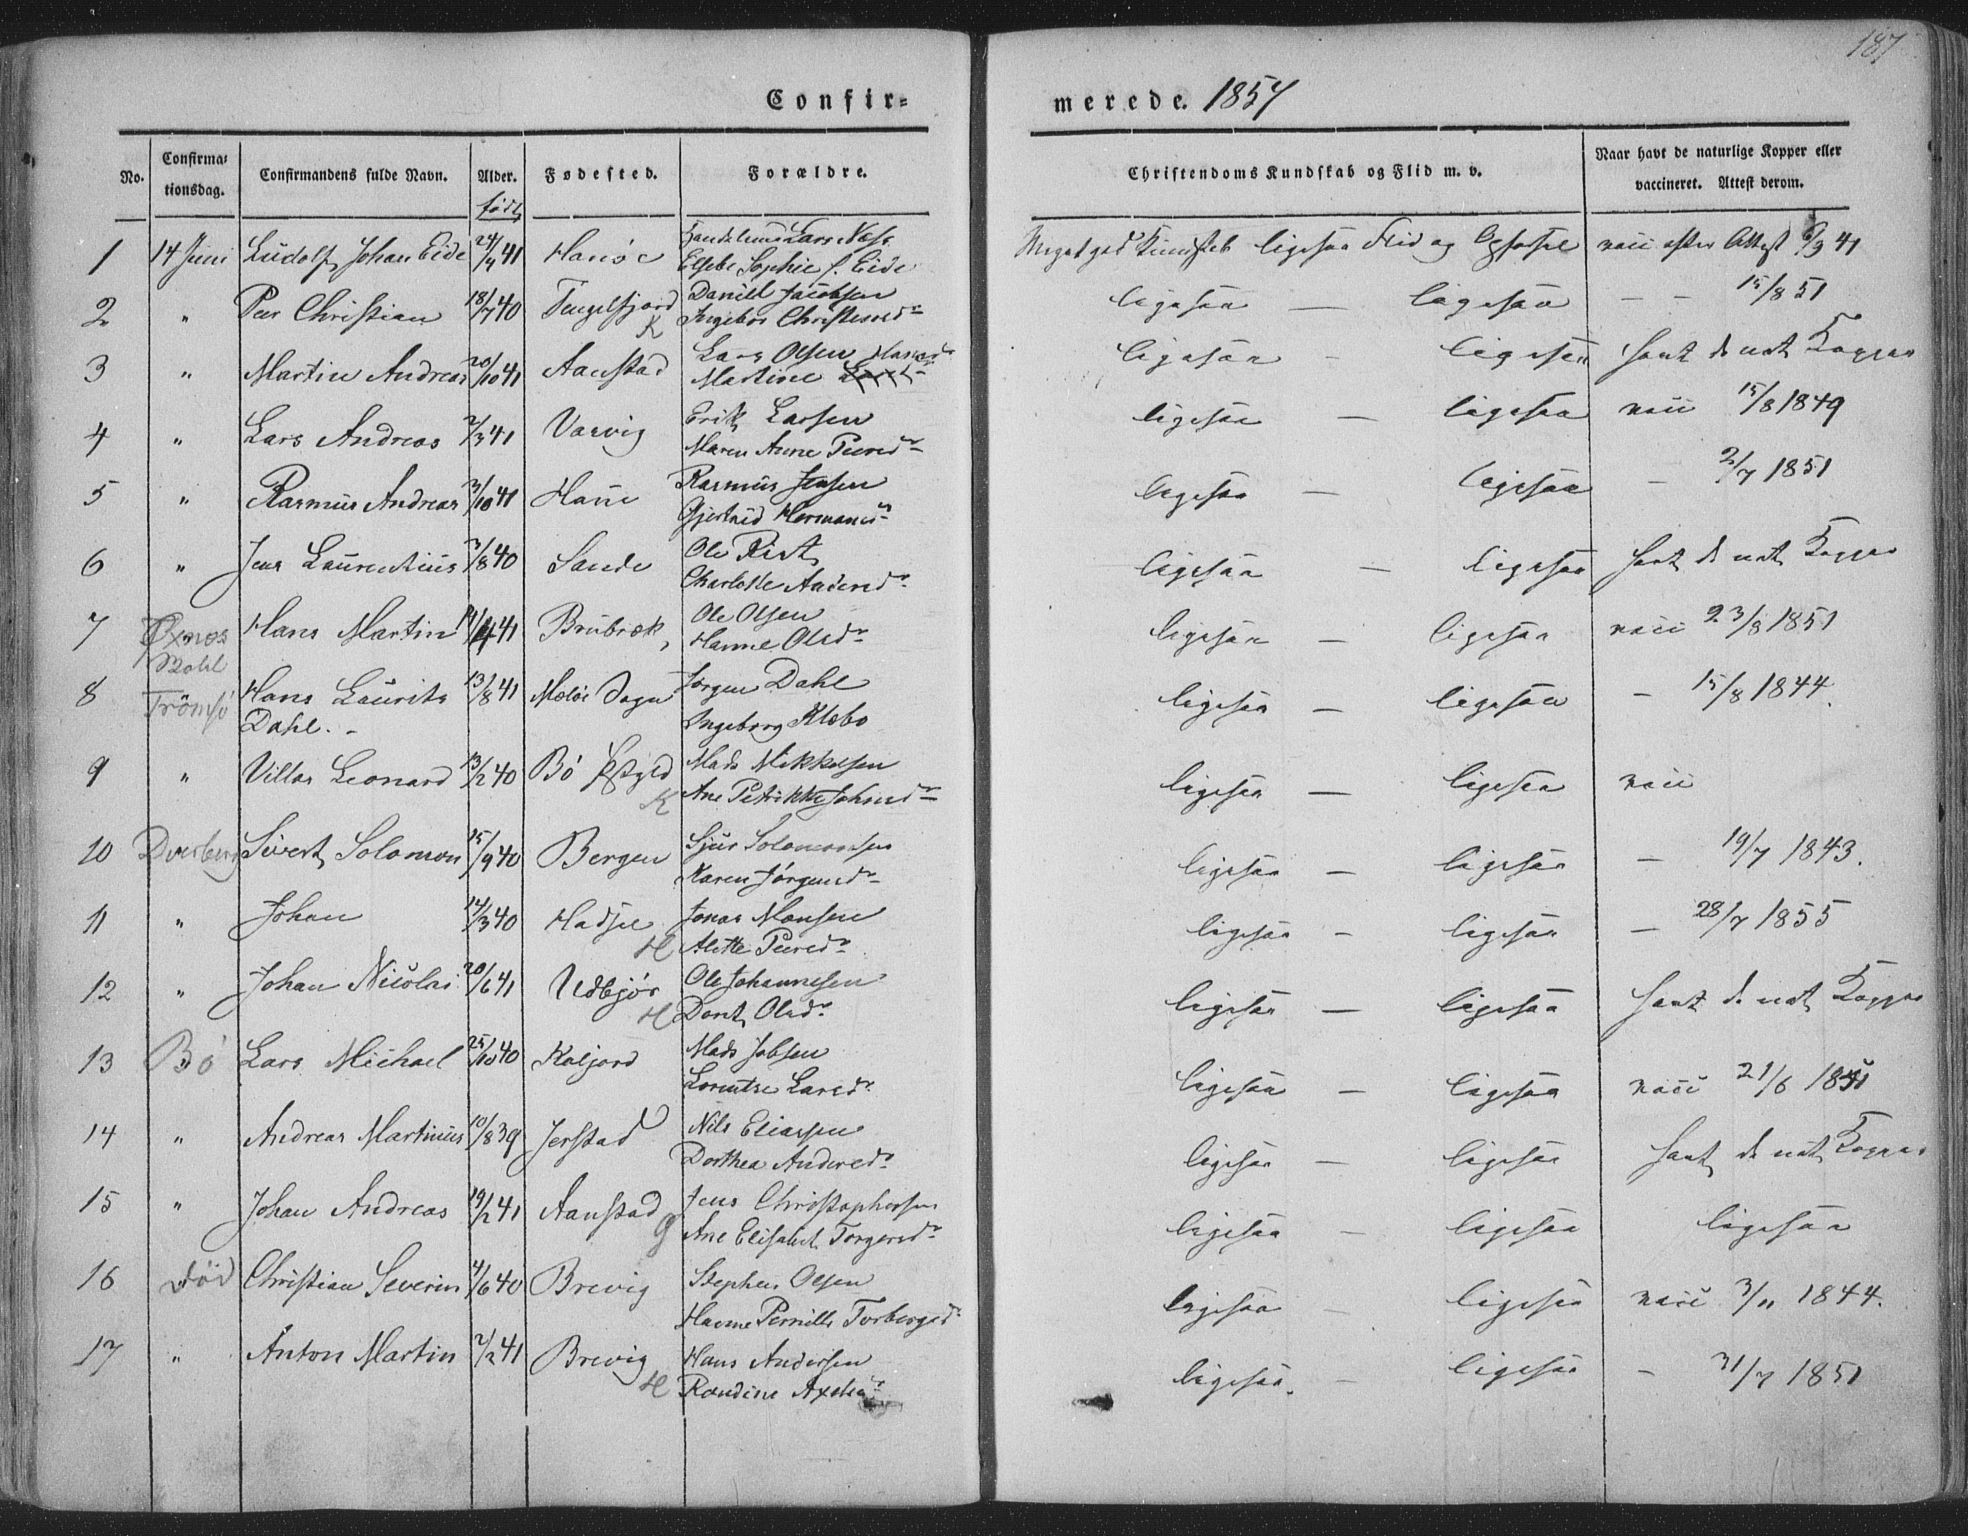 187
Confir= merede. 1857
No. Confirma= tionsdag. Confirmandens fulde Navn. Alder. Fødested. Forældre. Christendoms Kundskab og Flid m. v. Naar havt de naturlige Kopper eller vaccineret. Attest derom.
født
1 14 Juni Ludolf Johan Eide 24/4 41 Lars Næss Meget god Kundskab ligesaa Flid og Opførsel vacc efter Attest 41
Elsebe Sophie f. Eide
2 " Peer Christian 18/7 40 Tengelfjord Daniel Jacobsen ligesaa — ligesaa — — 15/8 51
K Ingebor Christensd.
3 " Martin Andreas 20/10 41 Aanstad Lars Olsen ligesaa — ligesaa havt de nat Kopper
Martine Hansd.
4 " Lars Andreas 2/3 41 Varvig Erik Larsen ligesaa — ligesaa vacc 15/8 1849
Maren Anne Peersd.
5 " Rasmus Andreas 3/10 41 Haue Rasmus Jensen ligesaa — ligesaa — 2/7 1851
Gjertrud Hermansd.
6 " Jens Laurentius 3/8 40 Sande Ole Rist ligesaa — ligesaa havt de nat Kopper
Charlotte Andersd.
7 Øxnes Hans Martin 14/4 41 Brubræk Ole Olsen ligesaa — ligesaa vacc 23/8 1851
Hanne Olsd.
8 Tromsø Hans Laurits 13/8 41 Meløe Sogn Jørgen Dahl ligesaa — ligesaa — 15/8 1844.
Dahl. Ingeborg Klæbo
9 " Villas Leonard 13/2 40 Bø Mads Mikkelsen ligesaa — ligesaa vacc
K Ane Petrikke Johnsd.
10 Dverberg Sivert Solomon 15/9 40 Bergen Sjur Solomonsen ligesaa — ligesaa — 19/7 1843.
Karen Jørgensd.
11 " Johan 14/3 40 Hadsel Jonas Monsen ligesaa — ligesaa — 28/7 1855
H Alette Peersd.
12 " Johan Nicolai 20/6 41 Udbjør Ole Johannesen ligesaa — ligesaa havt de nat Kopper
H Dort Olsd.
13 Bø Lars Michael 25/10 40 Kaljord Mads Jobsen ligesaa — ligesaa vacc 21/6
Lorentse Larsd.
14 " Andreas Martinus 10/8 39 Jerstad Nils Eliassen ligesaa — ligesaa havt de nat Kopper
Dorthea Andersd.
15 " Johan Andreas 19/2 41 Aanstad Jens Christophersen ligesaa — ligesaa ligesaa
g Ane Elisabet Torgersd.
16 Død Christian Severin 4/6 40 Brevig Stephen Olsen ligesaa — ligesaa vacc 3/11 1844.
Hanne Pernille Torbergsd.
17 " Anton Martin 2/2 41 Brevig Hans Andersen ligesaa. — ligesaa — 31/7 1851
H Randine